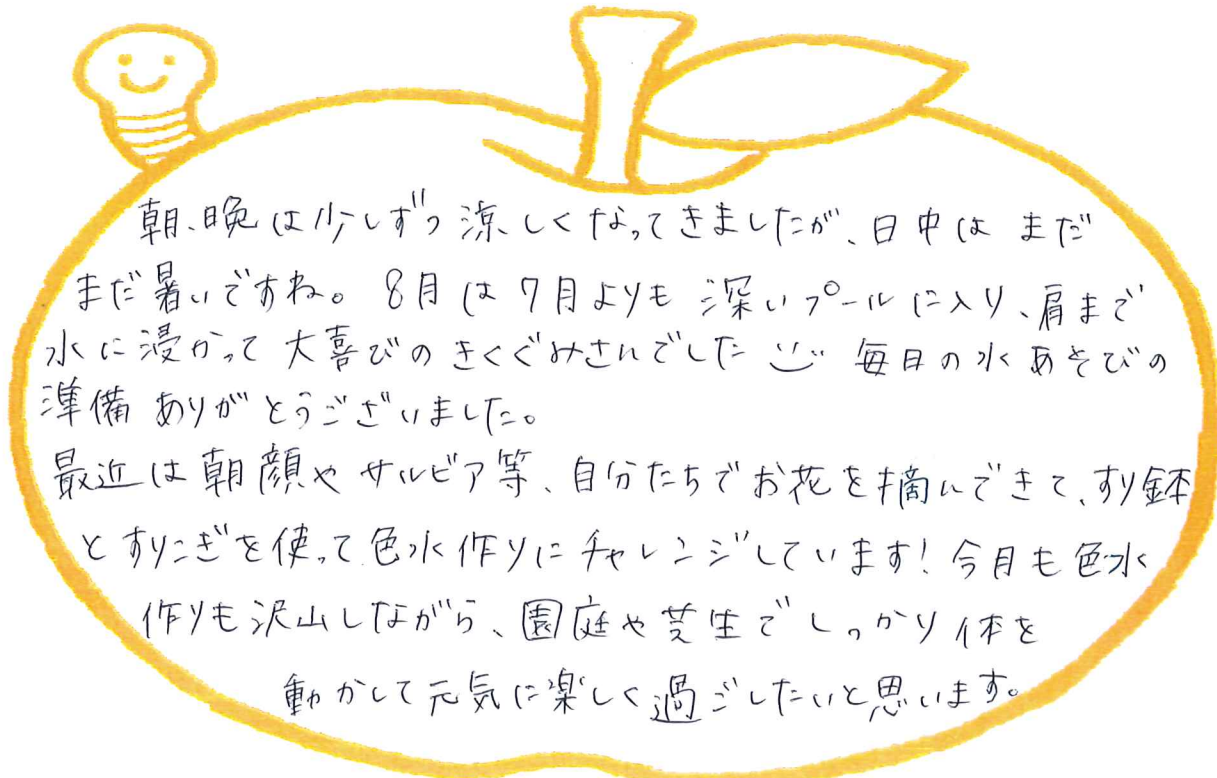 朝、晩は少しずつ涼しくなってきましたが、日中は まだ
まだ暑いですね。 8月は7月よりも 深いプールに入り、肩まで
水に浸かって大喜びのきくぐみさんでした 毎日の水あそびの
準備ありがとうございました。
最近は朝顔やサルビア等、自分たちでお花を摘んできて、すり鉢
とすりこぎを使って色水作りにチャレンジしています! 今月も色水
作りも沢山しながら、園庭や芝生でしっかり体を
動かして元気に楽しく過ごしたいと思います。